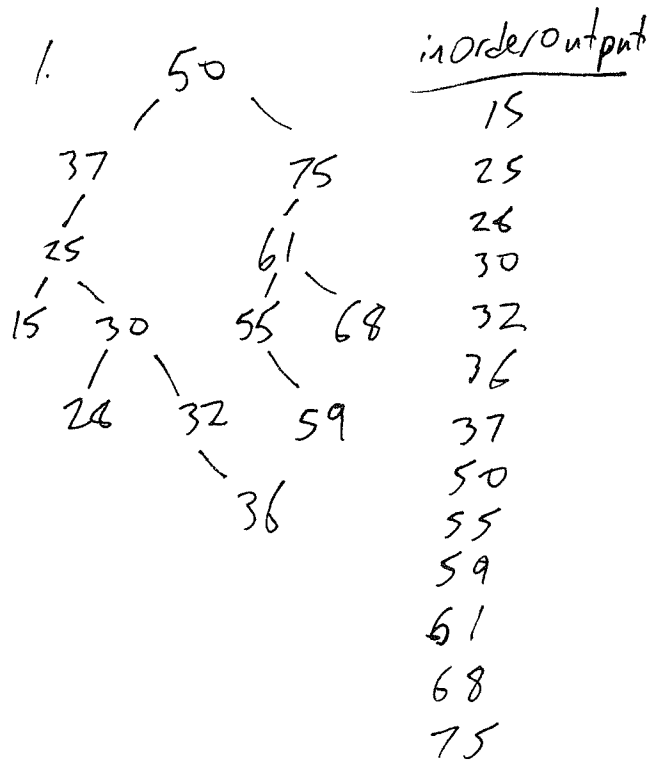 1.
50
37 75
25 61
15 30 55 68
28 32 59
36
inOrderOutput
15
25
28
30
32
36
37
50
55
59
61
68
75